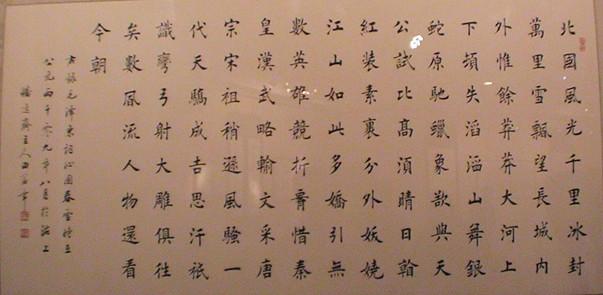 北國風光千里冰封
萬里雪飄望長城内
外惟餘莽莽大河上
下頓失滔滔山舞銀
蛇原馳蠟象欲與天
公試比髙須晴日
紅裝素裹分外妖嬈
江山如此多嬌引無
數英雄競折腰惜秦
皇漢武略輸文采唐
宗宋祖稍遜風騷一
代天驕成吉思汗祇
識彎弓射大雕俱往
矣數風流人物還看
今朝
右録毛澤東詞沁園春雪
公元兩千零九年八月於滬上
主人書